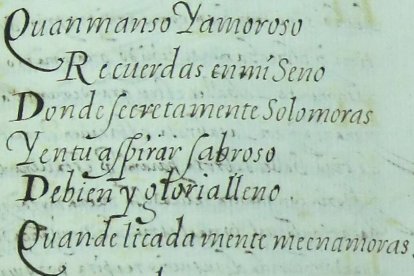 Quan manso Y amoroso
Recuerdas en mi Seno
Donde secretamente Solo moras
Y en tu aspirar sabroso
De bien y gloria lleno
Quan delicadamente me enamoras